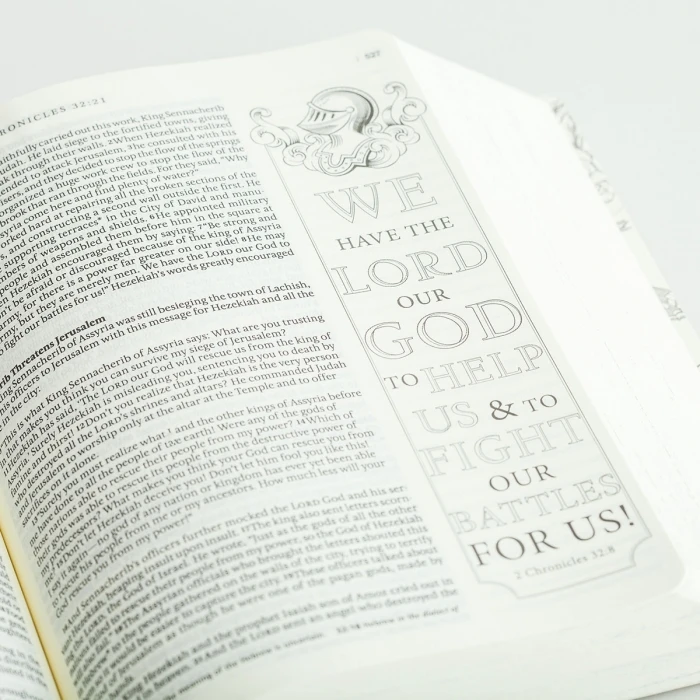 527
RONICLES 32:21
aithfully carried out this work, King Sennacherib
ah. He laid siege to the fortified towns, giving
through their walls. 2When Hezekiah realized
ended to attack Jerusalem, 3he consulted with his
isers, and they decided to stop the flow of the springs
organized a huge work crew to stop the flow of the
ook that ran through the fields. For they said, "Why
syria come here and find plenty of water?"
orked hard at repairing all the broken sections of the
and constructing a second wall outside the first. He
supporting terraces in the City of David and
bers of weapons and shields. 6He appointed military
people and assembled them before him in the square at
n Hezekiah encouraged them by saying: 7"Be strong and
of the king of Assyria
army, for there is a power far greater on our side! 8He may
ny, but they are merely men. We have the LORD our God to
fight our battles for us!" Hezekiah's words greatly encouraged
rib Threatens Jerusalem
ng Sennacherib of Assyria was still besieging the town of Lachish,
his officers to Jerusalem with this message for Hezekiah and all the
in the city:
This is what King Sennacherib of Assyria says: What are you trusting
makes you think you can survive my siege of Jerusalem?
Hezekiah has said, 'The LORD our God will rescue us from the king of
Assyria.' Surely Hezekiah is misleading you, sentencing you to death by
famine and thirst! 12Don't you realize that Hezekiah is the very person
who destroyed all the LORD's shrines and altars? He commanded Judah
and Jerusalem to worship only at the altar at the Temple and to offer
sacrifices on it alone.
"Surely you must realize what I and the other kings of Assyria before
me have done to all the people of the earth! Were any of the gods of
those nations able to rescue their people from my power? 14Which of
their gods was able to rescue its people from the destructive power of
my predecessors? What makes you think your God can rescue you from
me? 15Don't let Hezekiah deceive you! Don't let him fool you like this!
I say it again—no god of any nation or kingdom has ever yet been able
to rescue his people from me or my ancestors. How much less will your
God rescue you from my power!"
And Sennacherib's officers further mocked the LORD God and his
Hezekiah, heaping insult upon insult. 17The king also sent letters scorn
the God of Israel. He wrote, "Just as the gods of all the other
their people from my power, so the God of Hezekiah
The Assyrian officials who brought the letters shouted this
to the people gathered on the walls of the city, trying to terrify
it would be easier to capture the city. 19These officers talked about
of Jerusalem as though he were one of the pagan gods, made by
Hezekiah and the prophet Isaiah son of Amoz cried out in
in heaven. 21And the LORD sent an angel who destroyed the
WE
HAVE THE
LORD
OUR
GOD
TO HELP
US & TO
FIGHT
OUR
BATTLES
FOR US!
2 Chronicles 32:8